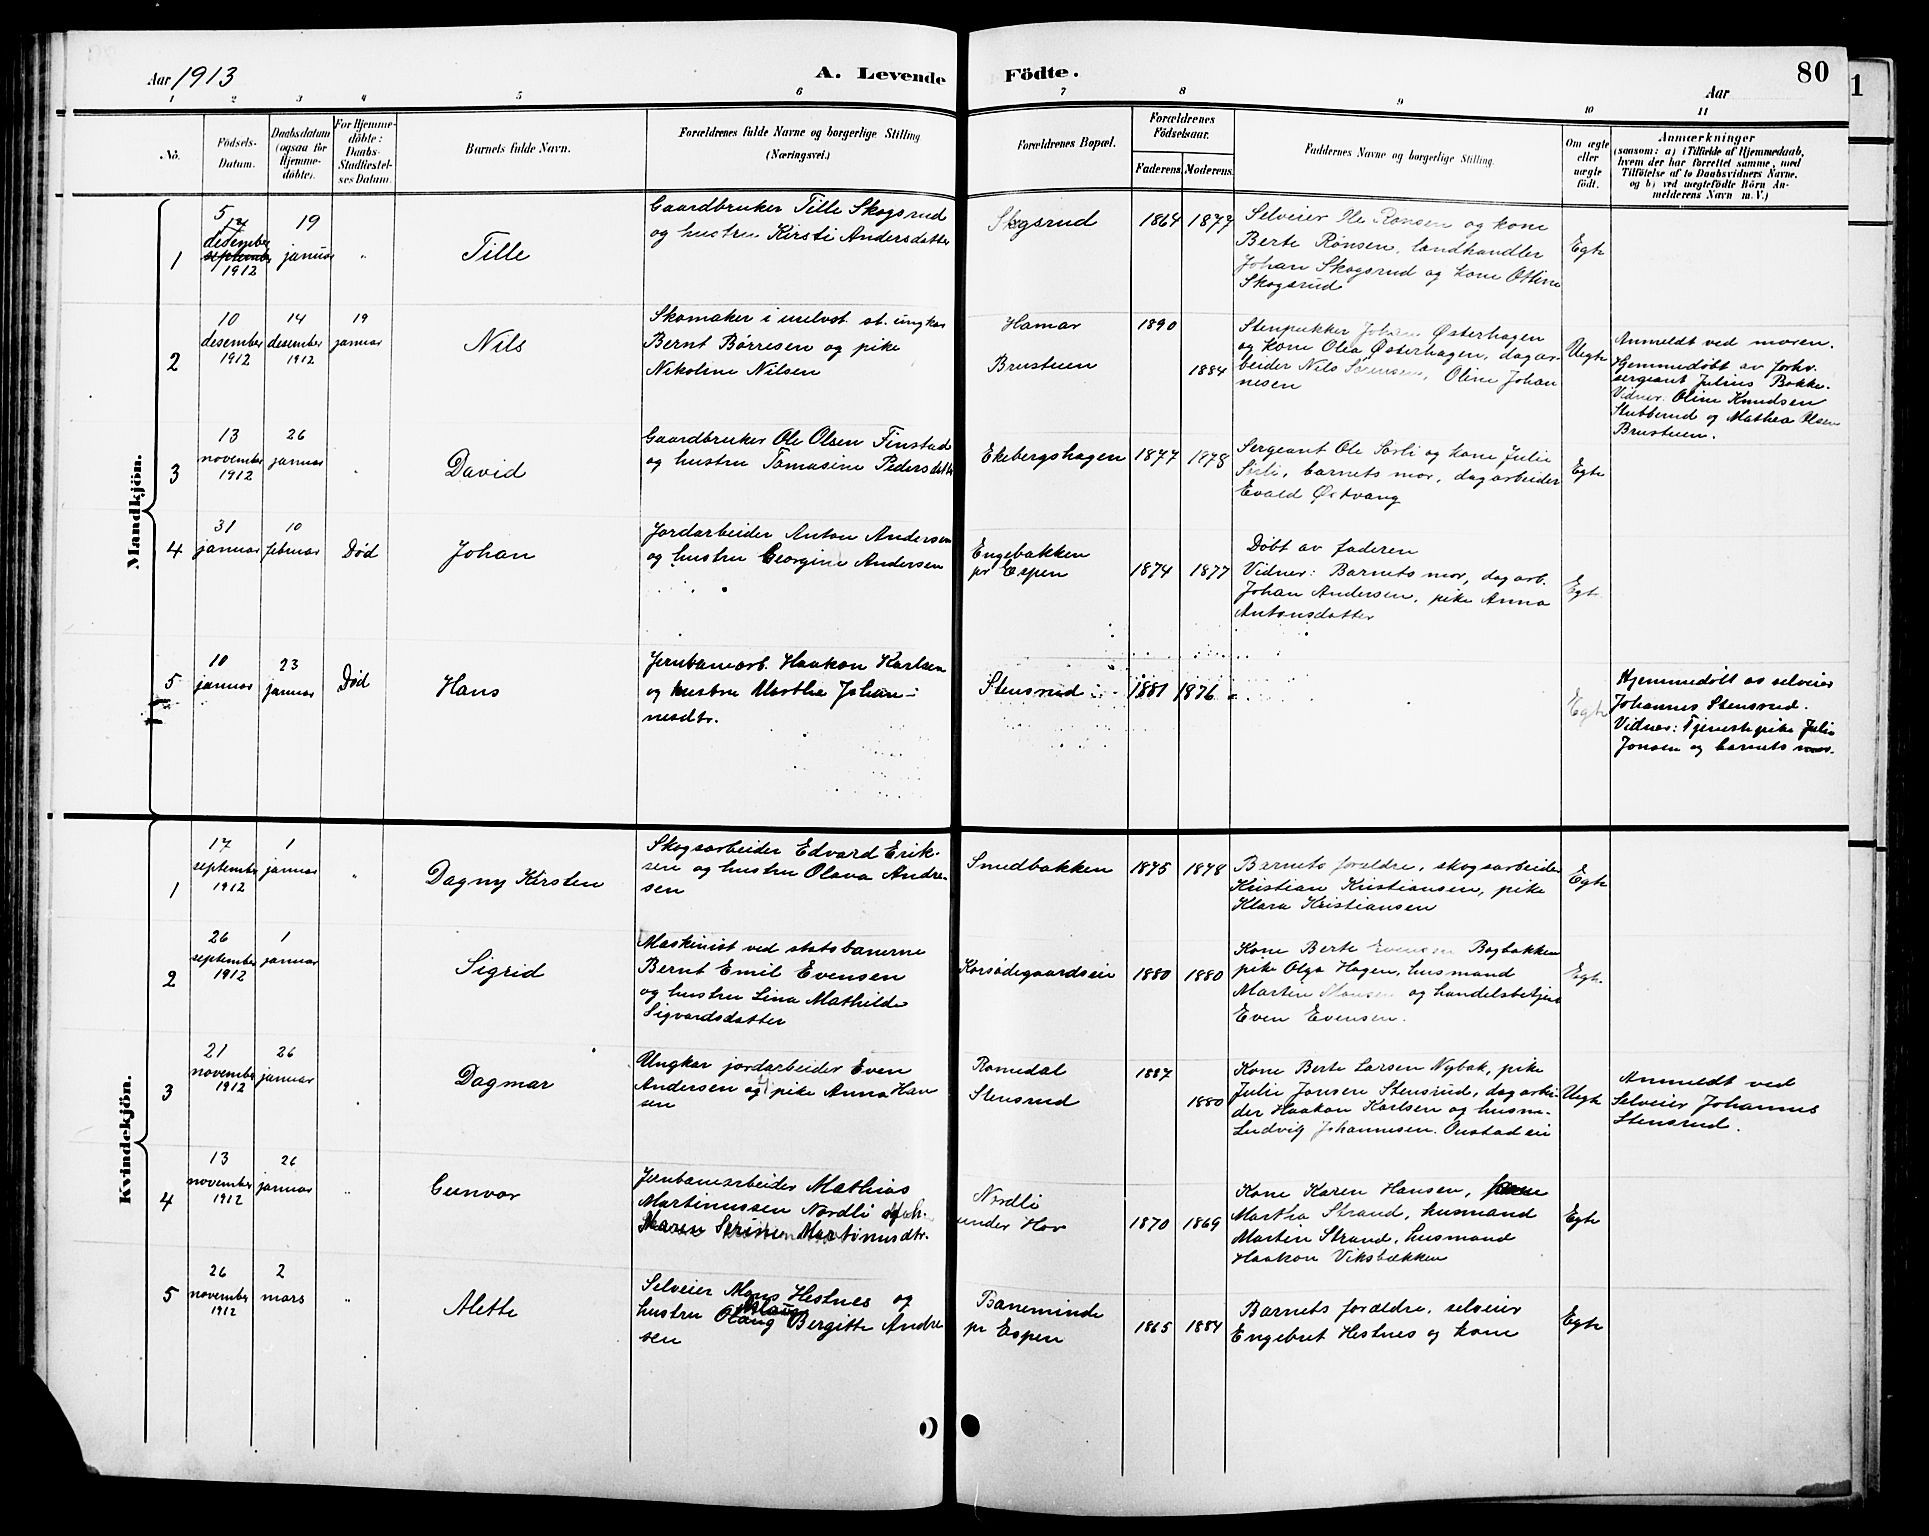 Aar 1913
A. Levende
Födte.
80
Aar
1
1 2 3 4 5 6 7 8 9 10 11
No.
Födsels-
Datum.
Daabsdatum
(ogsaa for
Hjemme-
døbte).
For Hjemme-
døbte:
Daabs-
Stadfæstel-
ses Datum.
Barnets fulde Navn.
Forældrenes fulde Navne og borgerlige Stilling
(Næringsvei.)
Forældrenes Bopæl.
Forældrenes
Födselsaar.
Faderens.
Moderens.
Faddernes Navne og borgerlige Stilling.
Om ægte
eller
uægte
født.
Anmærkninger
(saasom: a) i Tilfælde af Hjemmedaab,
hvem der har forrettet samme, med
Tilføielse af to Daabsvidners Navne.
og b) ved uægtefødte Börn An-
melderens Navn m. V.)
Mandkjön.
1
5
desember
september
1912
19
januar
"
Tille
Gaardbruker Tille Skogsrud
og hustru Kirsti Andersdatter
Skogsrud
1864
1877
Selveier Ole Rønsen og kone
Berte Rønsen, landhandler
Johan Skogsrud og kone Otline
Skogsrud
Egte
2
10
desember
1912
14
desember
1912
19
januar
Nils
Skomaker i uselvst. st. ungkar
Bernt Børresen og pike
Nikoline Nilsen
Hamar
Brustuen
1890
1884
Stenpukker Johan Østerhagen
og kone Olea Østerhagen, dagar-
beider Nils Sørensen, Oline Johan
nesen
Uegte
Anmeldt ved moren.
Hjemmedøbt av forhv.
sergeant Julius Bakke.
Vidner: Oline Knudsen
Stubberud og Mathea Olsen
Brustuen.
3
13
november
1912
26
januar
"
David
Gaardbruker Ole Olsen Finstad
og hustru Tomasine Pedersdatter
Ekebergshagen
1877
1878
Sergeant Ole Sørli og kone Julie
Sørli, barnets mor, dagarbeider
Evald Østvang
Egte
4
31
januar
10
februar
Død
Johan
Jordarbeider Anton Andersen
og hustru Georgine Andersen
Engebakken
pr Espen
1874
1877
Døbt av faderen
Vidner: Barnets mor, dagarb.
Johan Andersen, pike Anna
Antonsdatter
Egte
5
10
januar
23
januar
Død
Hans
Jernbanearb. Haakon Karlsen
og hustru Marthe Johan-
nesdtr.
Stensrud
1881
1876
Egte
Hjemmedøbt av selveier
Johannes Stensrud.
Vidner: Tjenestepike Julie
Jonsen og barnets mor.
Kvindekjön.
1
17
september
1912
1
januar
"
Dagny Kirsten
Skogsarbeider Edvard Erik-
sen og hustru Olava Andre-
sen
Smedbakken
1875
1878
Barnets forældre, skogsarbeider
Kristian Kristiansen, pike
Klara Kristiansen
Egte
2
26
september
1912
1
januar
Sigrid
Maskinist ved statsbanerne
Bernt Emil Evensen
og hustru Lina Mathilde
Sigvardsdatter
Korsødegaardseie
1880
1880
Kone Berte Evensen Bagbakken
pike Olga Hagen, husmand
Martin og handelsbetjent
Even Evensen.
Egte
3
21
november
1912
26
januar
Dagmar
Ungkar jordarbeider Even
Andersen og pike Anna Han
sen
Romedal
Stensrud
1887
1880
Kone Berte Larsen Nybak, pike
Julie Jonsen Stensrud, dagarbei-
der Haakon Karlsen og husm.
Ludvig Johannesen. Onstadeie
Uegte
Anmeldt ved
Selveier Johannes
Stensrud.
4
13
november
1912
26
januar
"
Gunvor
Jernbanearbeider Mathias
Martinussen Nordli og h.
Maren Martinusdtr.
Nordli
under Hov
1870
1869
Kone Karen Hansen,
Martha Strand, husmand
Martin Strand, husmand
Haakon Viksbækken
Egte
5
26
november
1912
2
mars
"
Alette
Selveier Mons Hestnes og
hustru Olaug Bergitte Andre
sen
Baneminde
pr Espen
1865
1884
Barnets forældre, selveier
Engebret Hestnes og kone
Egte